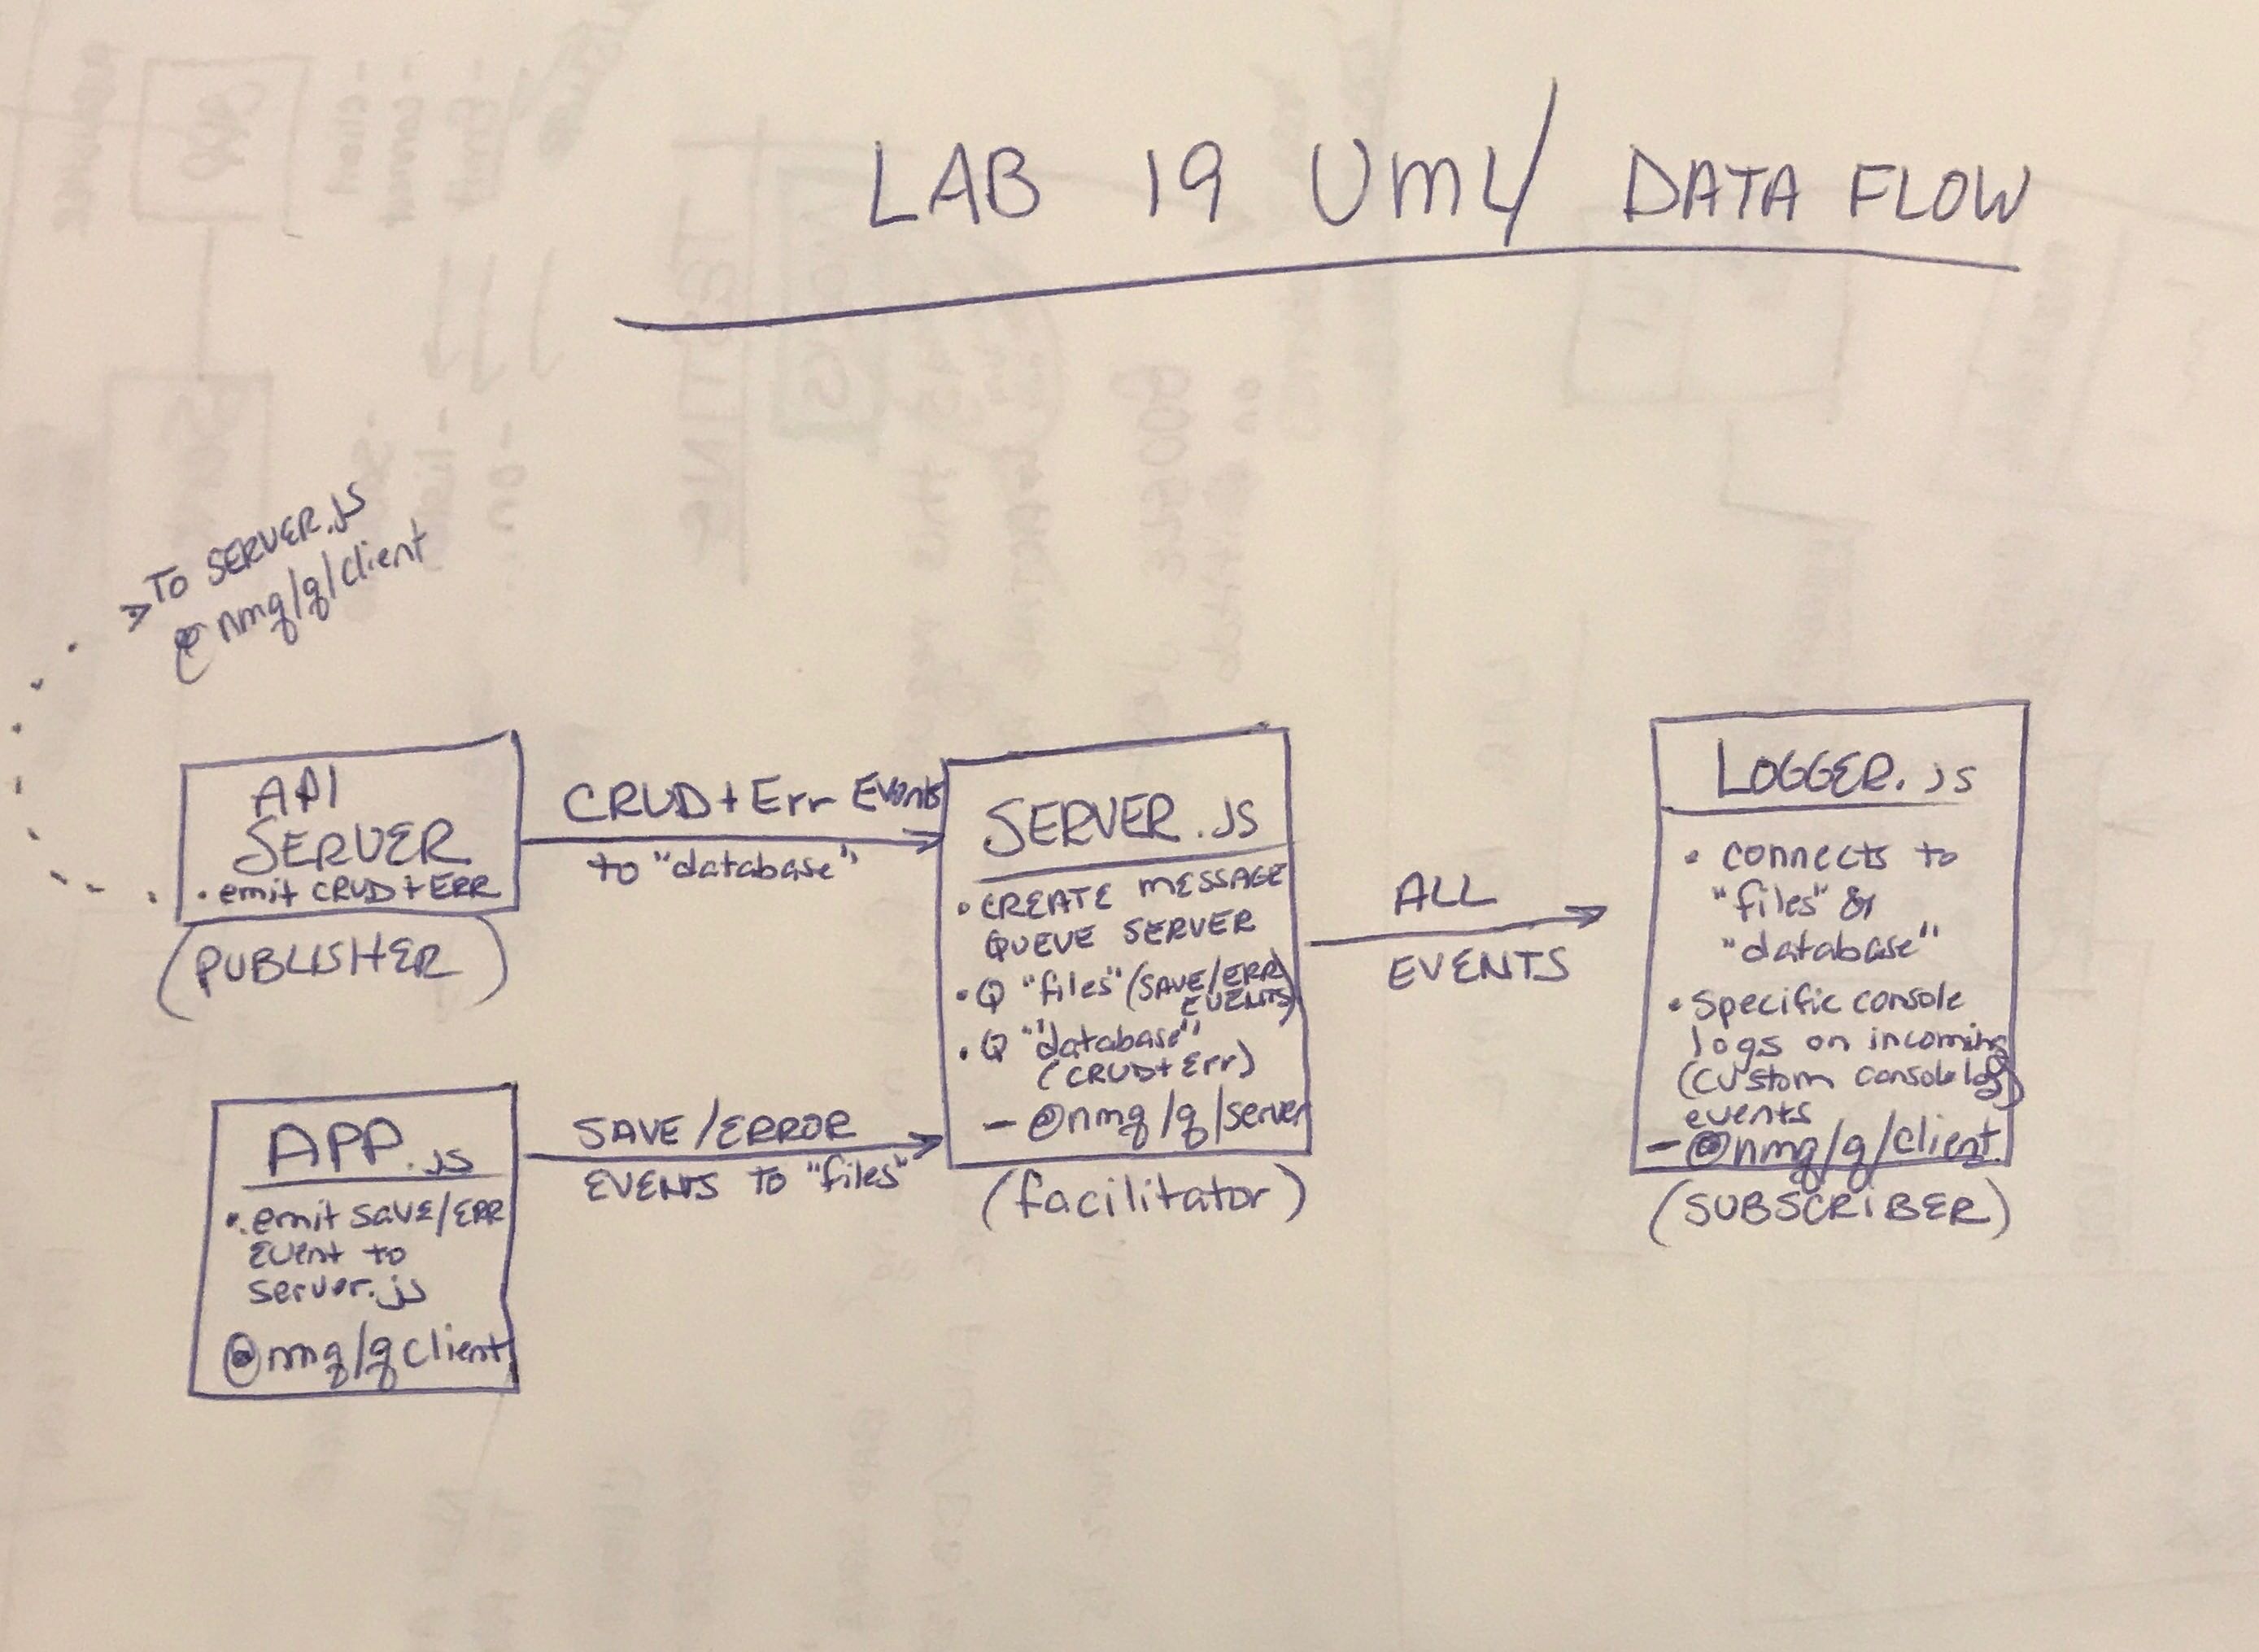 LAB 19 UML/ DATA FLOW
TO SERVER.JS
@nmq/q/client
API
SERVER
• emit CRUD + ERR
(PUBLISHER)
CRUD + Err Events
to "database"
APP.js
• emit SAVE/ERR
Event to
server.js
@nmq/qclient
SAVE/ERROR
EVENTS TO "files"
SERVER.JS
• CREATE MESSAGE
QUEUE SERVER
• Q "files" (SAVE/ERR
EVENTS)
• Q "database"
(CRUD + Err)
- @nmq/q/server
(facilitator)
ALL
EVENTS
LOGGER.js
• connects to
"files" &
"database"
• Specific console
logs on incoming
(custom console log)
events
- @nmq/q/client
(SUBSCRIBER)